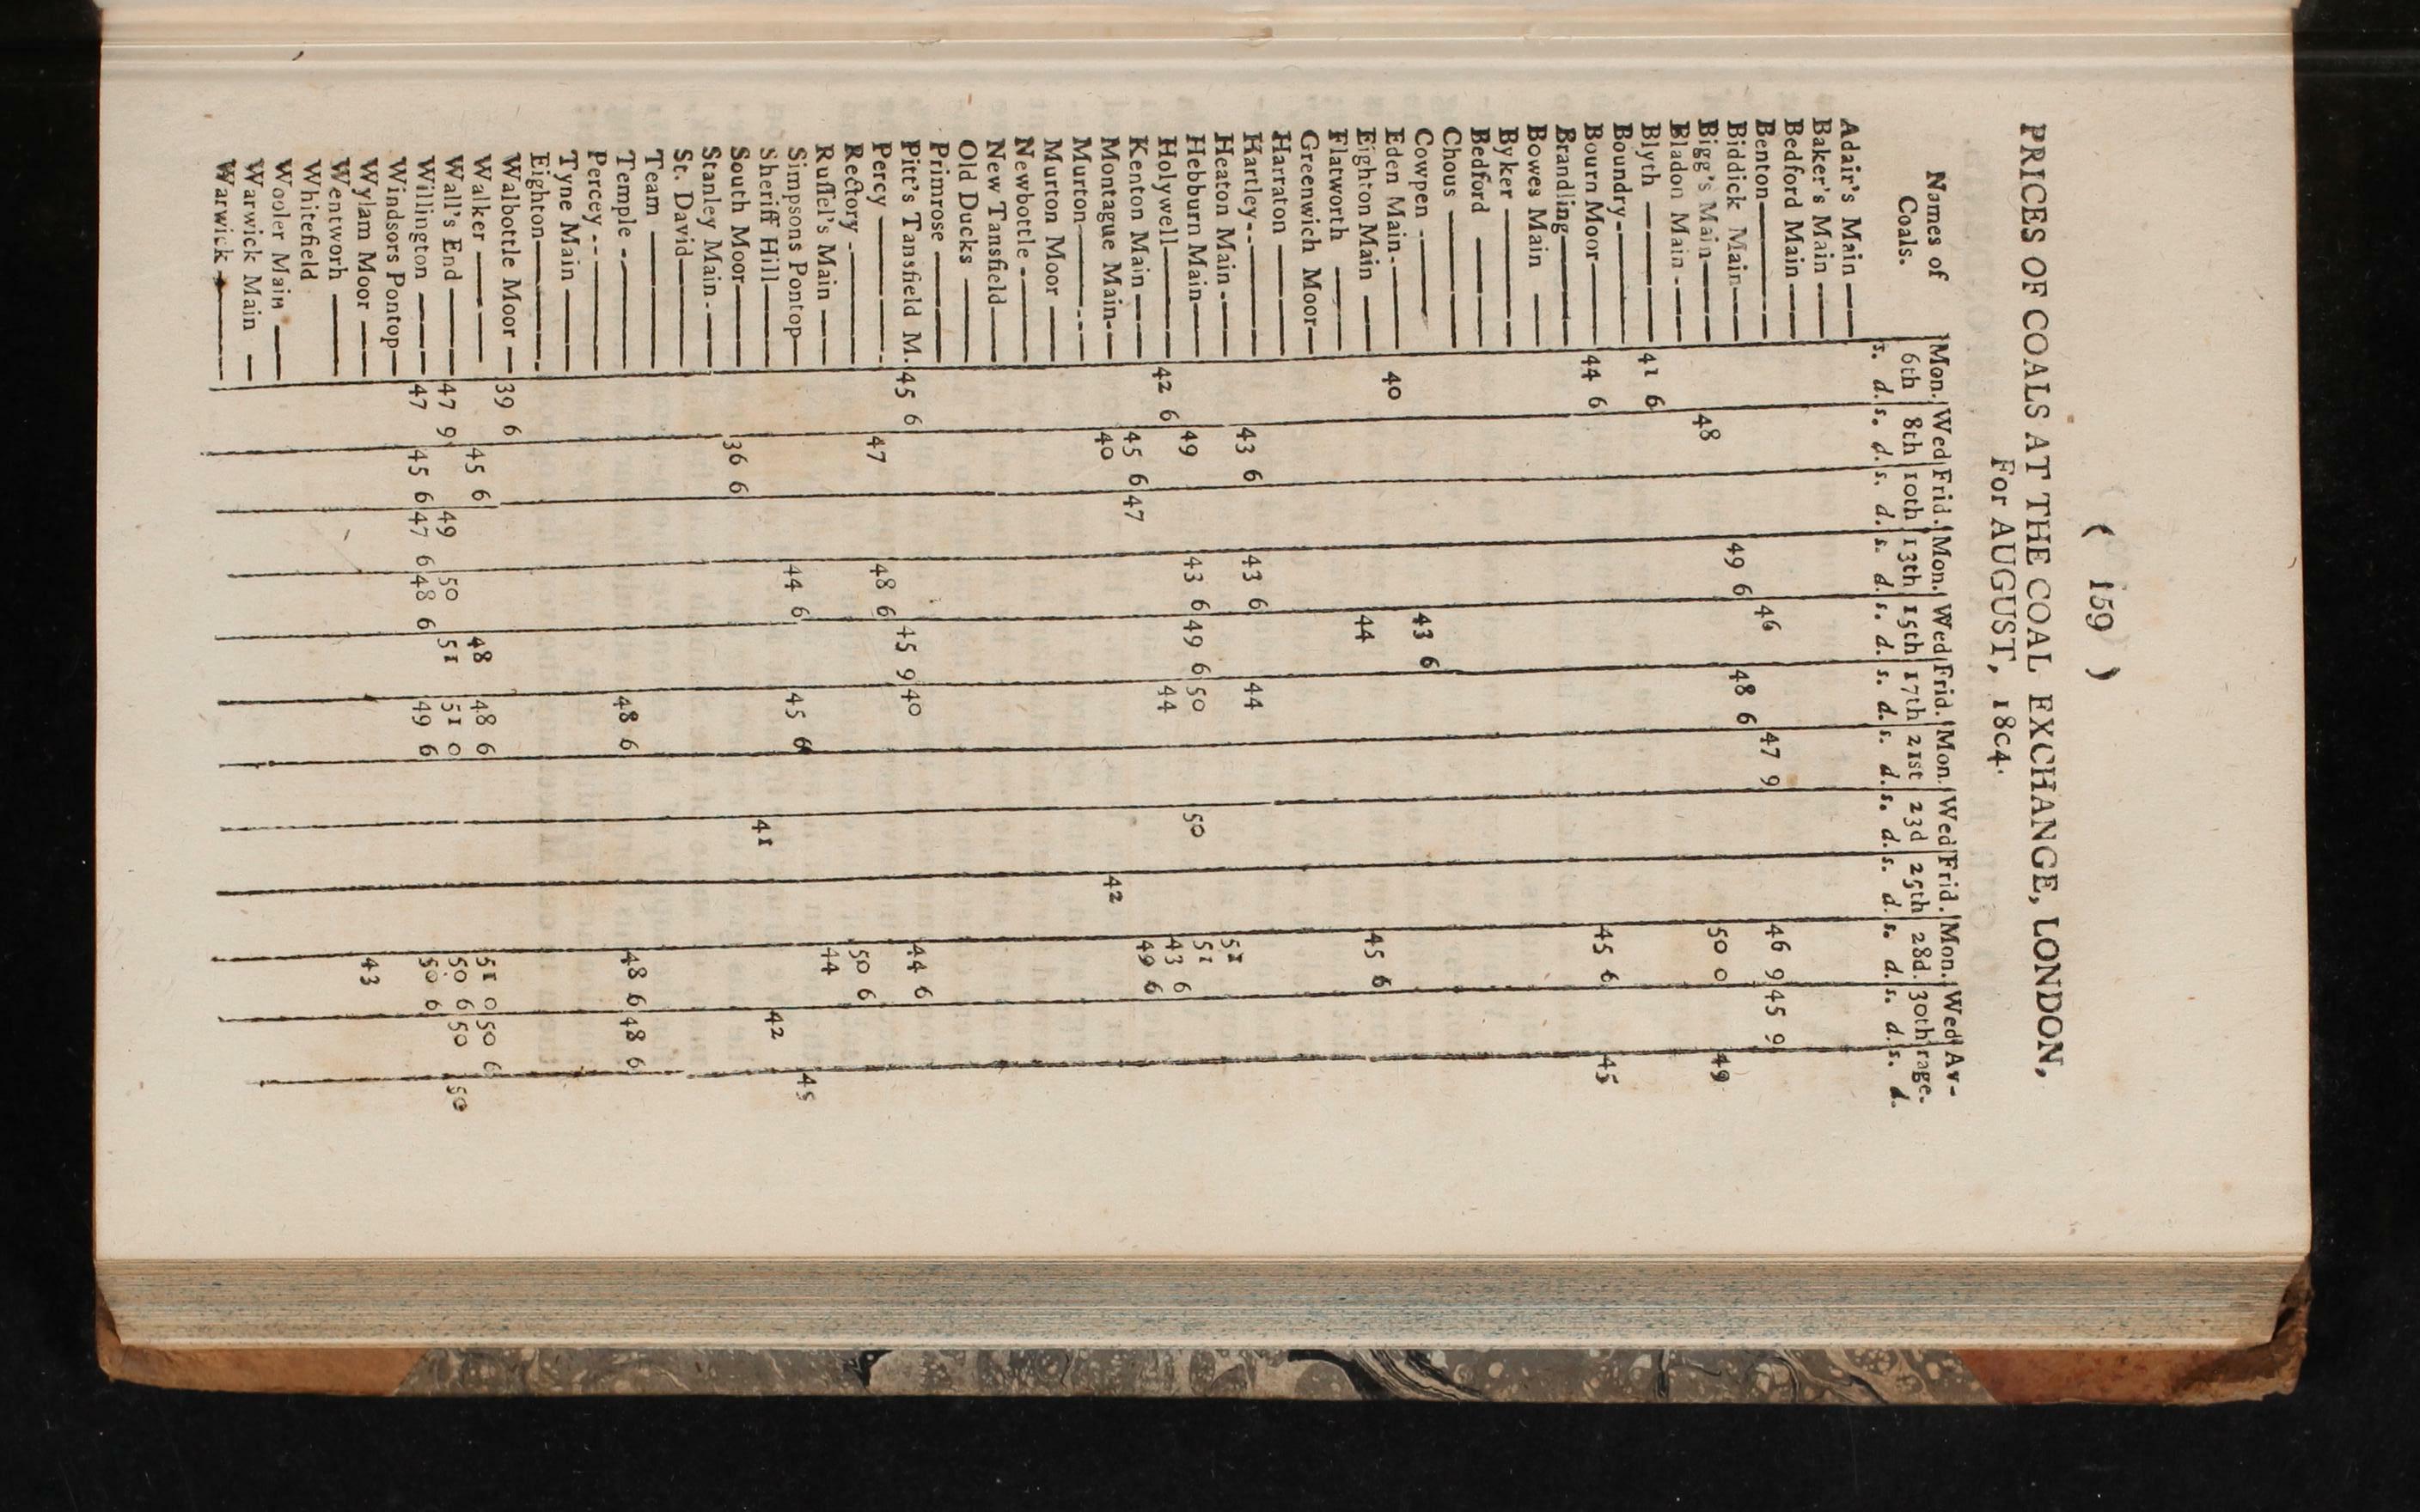 ( 159 )
PRICES OF COALS AT THE COAL EXCHANGE, LONDON,
For AUGUST, 1804.
Names of Coals. | Mon. 6th | Wed 8th | Frid. 10th | Mon. 13th | Wed 15th | Frid. 17th | Mon. 21st | Wed 23d | Frid. 25th | Mon. 28d. | Wed 30th | Av-rage.
s. d. s. d. s. d. s. d. s. d. s. d. s. d. s. d. s. d. s. d. s. d. s. d.
Adair's Main
Baker's Main
Bedford Main
Benton 46 47 9 46 9 45 9
Biddick Main 49 6 48 6
Bigg's Main 48 50 0 49
Bladon Main
Blyth 41 6
Boundry
Bourn Moor 44 6 45 6 45
Brandling
Bowes Main
Byker
Bedford
Chous
Cowpen 43 6
Eden Main 40
Eighton Main 44 45 6
Flatworth
Greenwich Moor
Harraton
Hartley 43 6 43 6 44
Heaton Main 51
Hebburn Main 49 43 6 49 6 50 50 51
Holywell 42 6 44 43 6
Kenton Main 45 6 47 49 6
Montague Main 40 42
Murton
Murton Moor
Newbottle
New Tansfield
Old Ducks
Primrose
Pitt's Tansfield M. 45 6 45 9 40 44 6
Percy 47 48 6
Rectory 50 6
Ruffel's Main 44
Simpsons Pontop 44 6 45 6 45
Sheriff Hill 41 42
South Moor 36 6
Stanley Main
St. David
Team
Temple 48 6 48 6 48 6
Percey
Tyne Main
Eighton
Walbottle Moor 39 6
Walker 45 6 48 48 6 51 0 50 6
Wall's End 47 9 49 50 51 51 0 50 6 50 50
Willington 47 45 6 47 6 48 6 49 6 50 6
Windsors Pontop
Wylam Moor 43
Wentworh
Whitefield
Wooler Main
Warwick Main
Warwick